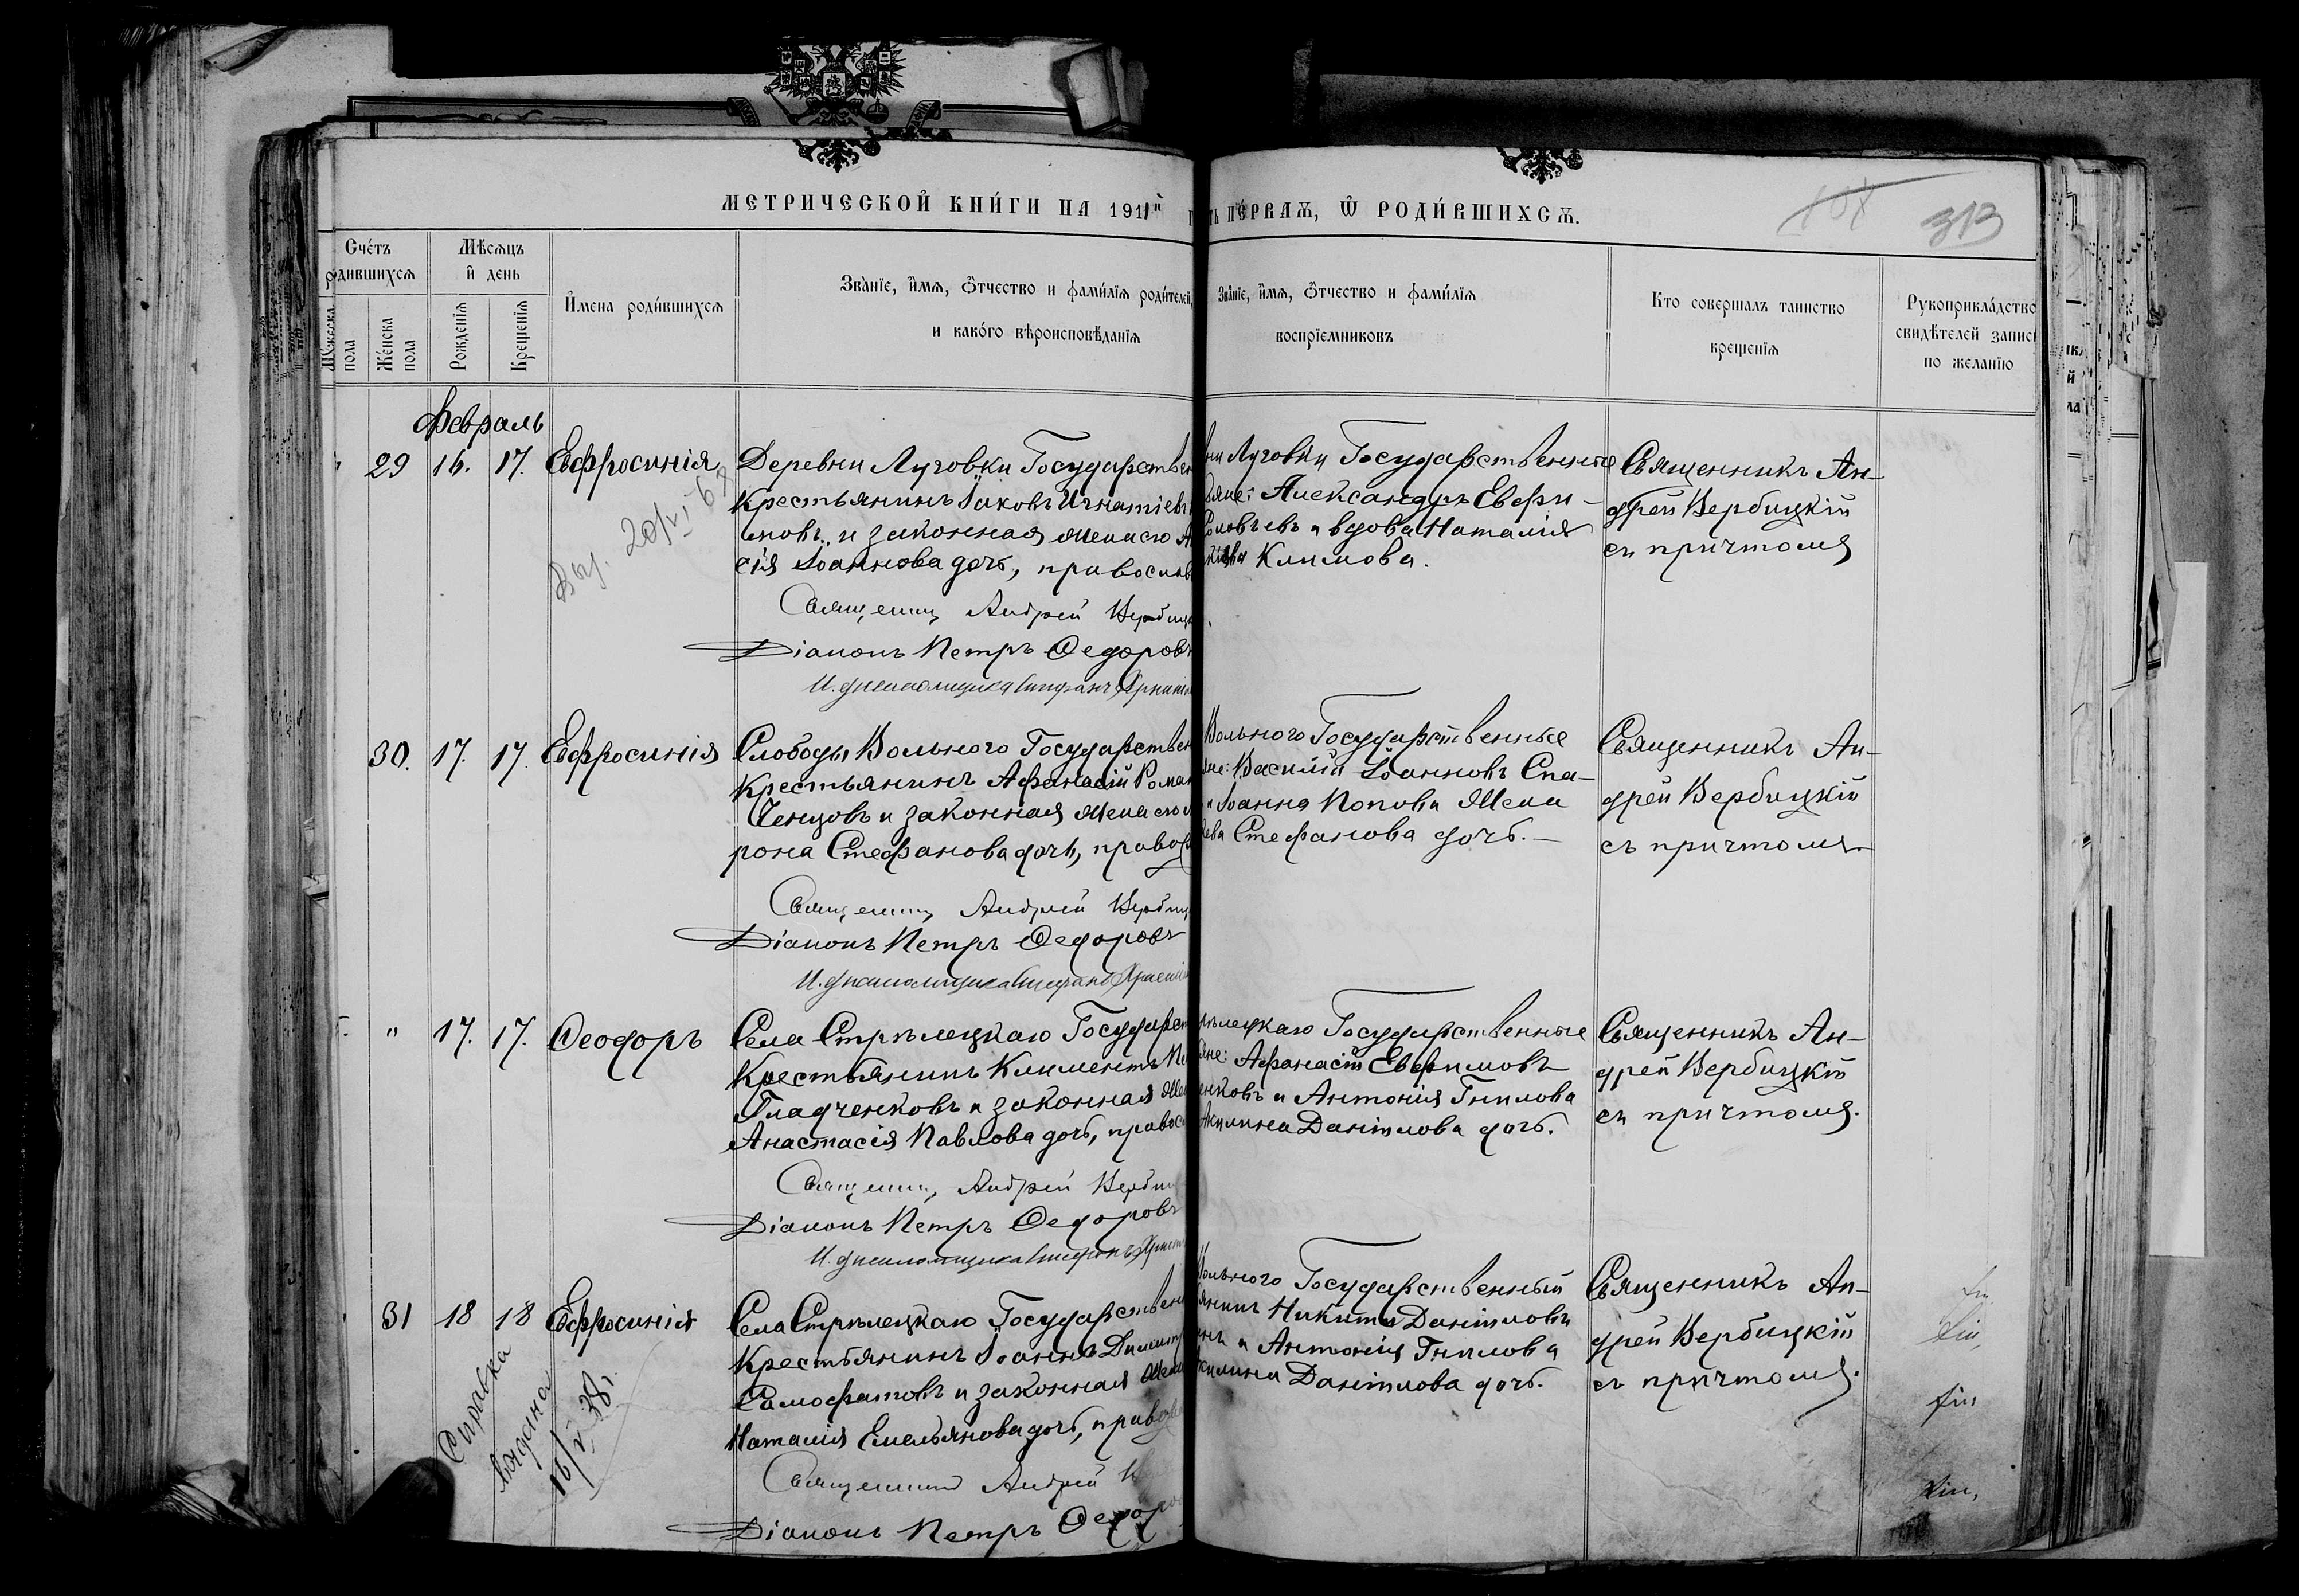 МЕТРИЧЕСКОЙ КНИ́ГИ НА 1911й
ПЕ́РВАѦ, Ѿ РОДИ́ВШИХСѦ.
313
Сче́тъ родившихсѧ
Мѣсѧцъ и день
Имена роди́вшихсѧ
Зва́нїе, и́мѧ, ѻ́тчество и фами́лїѧ роди́телей,
и како́го вѣроисповѣ́данїѧ
Зва́нїе, и́мѧ, ѻ́тчество и фами́лїѧ
воспрїемниковъ
Кто совершалъ таинство
крещенїѧ
Рукоприкла́дство
свидѣ́телей
по желанїю
пола
Же́нска пола
Рожденїѧ
Крещенїѧ
Февраль
29 16. 17. Евфросинія
Деревни Луговки Государствен
Крестьянинъ Іаковъ Игнатіевъ
и законная жена его
сія Іоаннова дочь, православ
Священникъ Андрей
Діаконъ Петръ Ѳедоровъ
И. д. псаломщика
Луговки Государственные
Александръ Евфи-
и вдова Наталія
Климова.
Священникъ Ан-
дрей Вербицкій
съ причтомъ
30. 17. 17. Евфросинія
Слободы Вольного Государствен
Крестьянинъ Афанасій Роман
и законная жена его
рона Стефанова дочь, правос
Священникъ Андрей
Діаконъ Петръ Ѳедоровъ
И. д. псаломщика
Вольного Государственные
Василій Іоанновъ Спа-
и Іоанна Попова жена
Стефанова дочь.
Священникъ Ан-
дрей Вербицкій
съ причтомъ
" 17. 17. Ѳеодоръ
Села Стрѣлецкаго Государст
Крестьянинъ Климентъ
Гладченковъ и законная жен
Анастасія Павлова дочь, правос
Священникъ Андрей
Діаконъ Петръ Ѳедоровъ
И. д. псаломщика
Государственные
Афанасій Евфимовъ
енковъ и Антонія Гнилова
Акилина Даніилова дочь.
Священникъ Ан-
дрей Вербицкій
съ причтомъ.
31 18 18 Евфросинія
Села Стрѣлецкаго Государствен
Крестьянинъ Іоаннъ Димит
и законная жен
Наталія Емельянова дочь, право
Священникъ Андрей
Діаконъ Петръ Ѳедоро
Вольного Государственный
Никита Даніиловъ
и Антонія Гнилова
Акилина Даніилова дочь.
Священникъ Ан-
дрей Вербицкій
съ причтомъ.
Справка
выдана
16/V 38г.